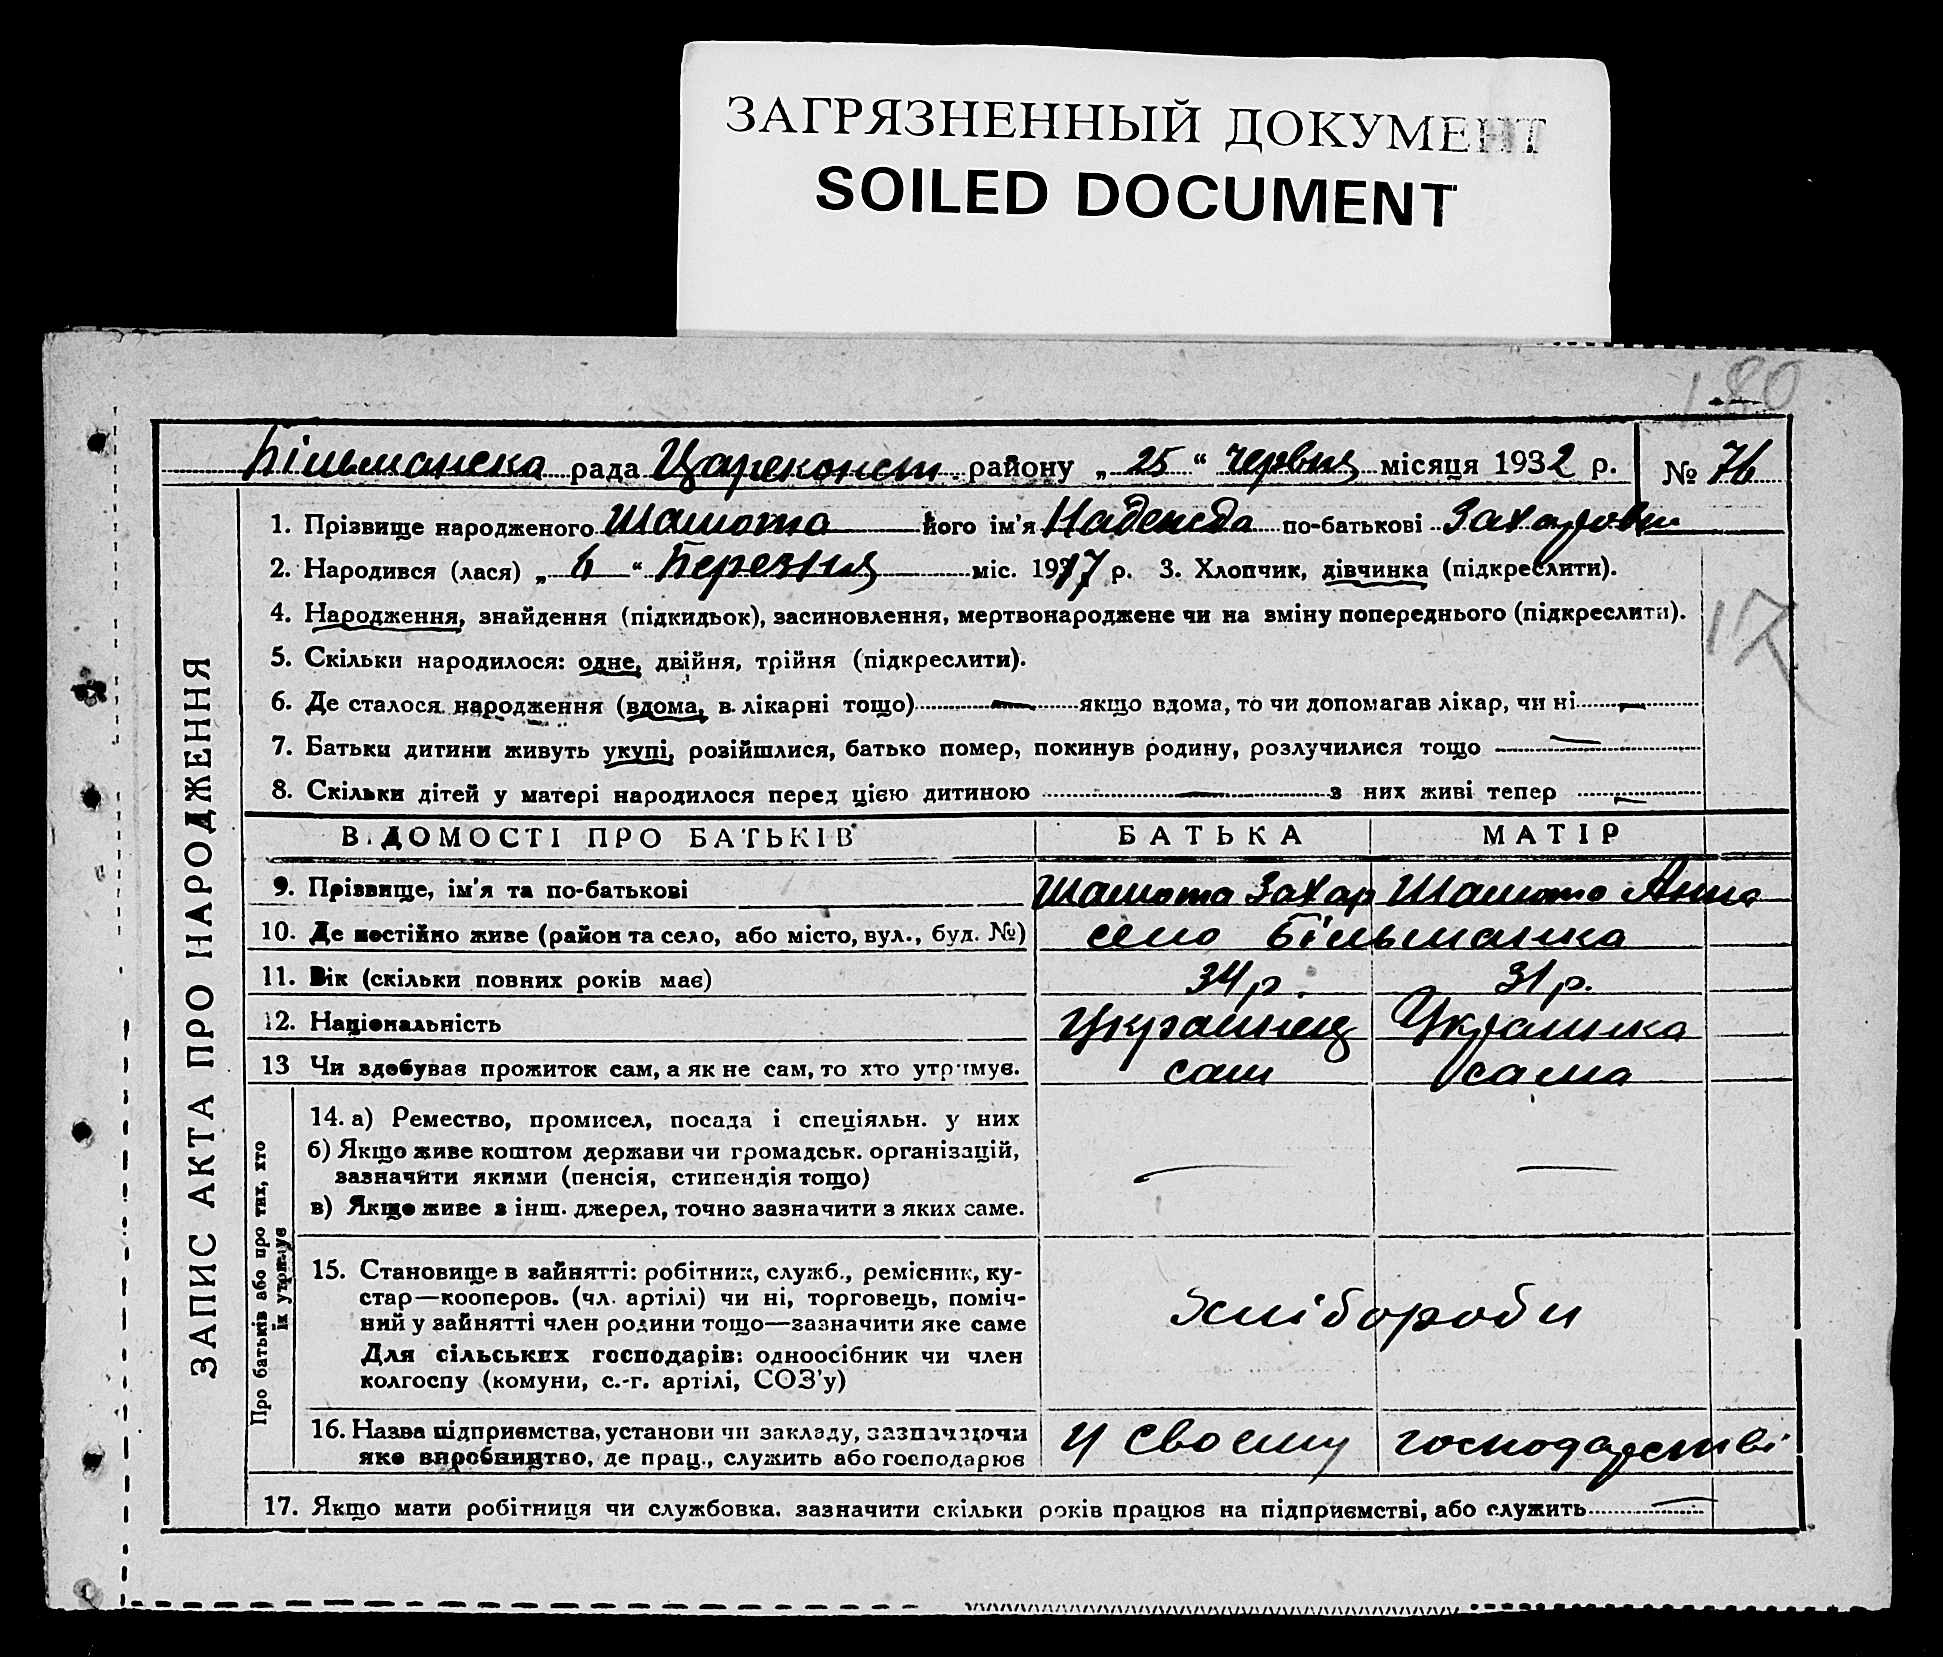 ЗАГРЯЗНЕННЫЙ ДОКУМЕНТ
SOILED DOCUMENT
180
Більманска рада Цареконст. району „25“ червня місяця 1932 р. № 76
1. Прізвище народженого Шамота його ім'я Надежда по-батькові Захаровн
2. Народився (лася) „6“ Березня міс. 1917 р. 3. Хлопчик, дівчинка (підкреслити).
4. Народження, знайдення (підкидьок), засиновлення, мертвонароджене чи на зміну попереднього (підкреслити).
17
5. Скільки народилося: одне, двійня, трійня (підкреслити).
6. Де сталося народження (вдома, в лікарні тощо) — якщо вдома, то чи допомагав лікар, чи ні —
7. Батьки дитини живуть укупі, розійшлися, батько помер, покинув родину, розлучилися тощо —
8. Скільки дітей у матері народилося перед цією дитиною — з них живі тепер —
ЗАПИС АКТА ПРО НАРОДЖЕННЯ
ВІДОМОСТІ ПРО БАТЬКІВ БАТЬКА МАТІР
9. Прізвище, ім'я та по-батькові Шамота Захар Шамота Анна
10. Де постійно живе (район та село, або місто, вул., буд. №) село Більманка
11. Вік (скільки повних років має) 34 р. 31 р.
12. Національність Украинец Украинка
13 Чи здобував прожиток сам, а як не сам, то хто утримує. сам сама
Про батьків або про тих, хто
їх утримує
14. а) Ремество, промисел, посада і спеціяльн. у них
б) Якщо живе коштом держави чи громадськ. організацій, — —
зазначити якими (пенсія, стипендія тощо)
в) Якщо живе з інш. джерел, точно зазначити з яких саме.
15. Становище в зайнятті: робітник, служб., ремісник, ку-
стар—кооперов. (чл. артілі) чи ні, торговець, поміч-
ний у зайнятті член родини тощо—зазначити яке саме хлібороби
Для сільських господарів: одноосібник чи член
колгоспу (комуни, с.-г. артілі, СОЗ'у)
16. Назва підприємства, установи чи закладу, зазначаючи у своєму господарстві
яке виробництво, де прац., служить або господарює
17. Якщо мати робітниця чи службовка. зазначити скільки років працює на підприємстві, або служить —